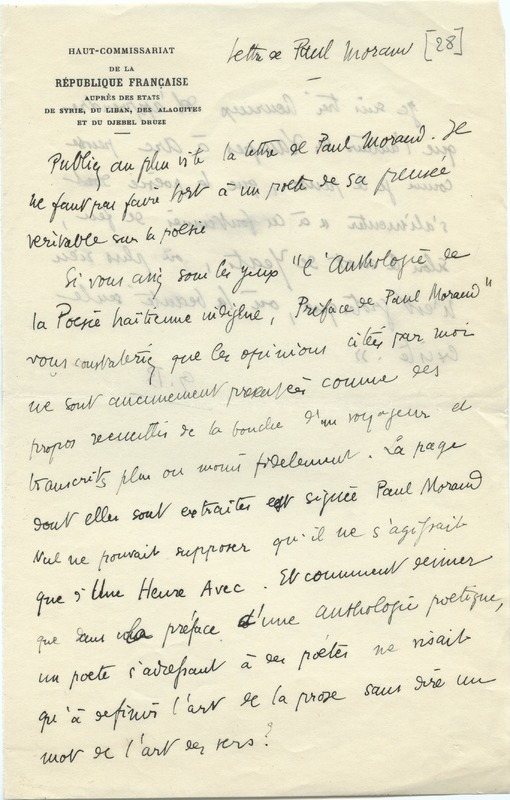 HAUT-COMMISSARIAT
DE LA
RÉPUBLIQUE FRANÇAISE
AUPRÈS DES ETATS
DE SYRIE, DU LIBAN, DES ALAOUITES
ET DU DJEBEL DRUZE
Lettre de Paul Morand [28]
Publiez au plus vite la lettre de Paul Morand. Je
ne faut pas faire tort à un poete de sa pensée
veritable sur la poésie
Si vous aviez sous les yeux "l'Anthologie de
la Poesie haitienne indigène, Préface de Paul Morand"
vous constateriez que les opinions citées par moi
ne sont aucunement presentées comme des
propos recueillis de la bouche d'un voyageur et
transcrits plus ou moins fidelement. La page
dont elles sont extraites est signée Paul Morand
Nul ne pouvait supposer qu'il ne s'agissait
que d'Une Heure Avec. Et comment deviner
que dans la préface d'une anthologie poetique,
un poete s'adressant à des poétes ne visait
qu'à definir l'art de la prose sans dire un
mot de l'art des vers?